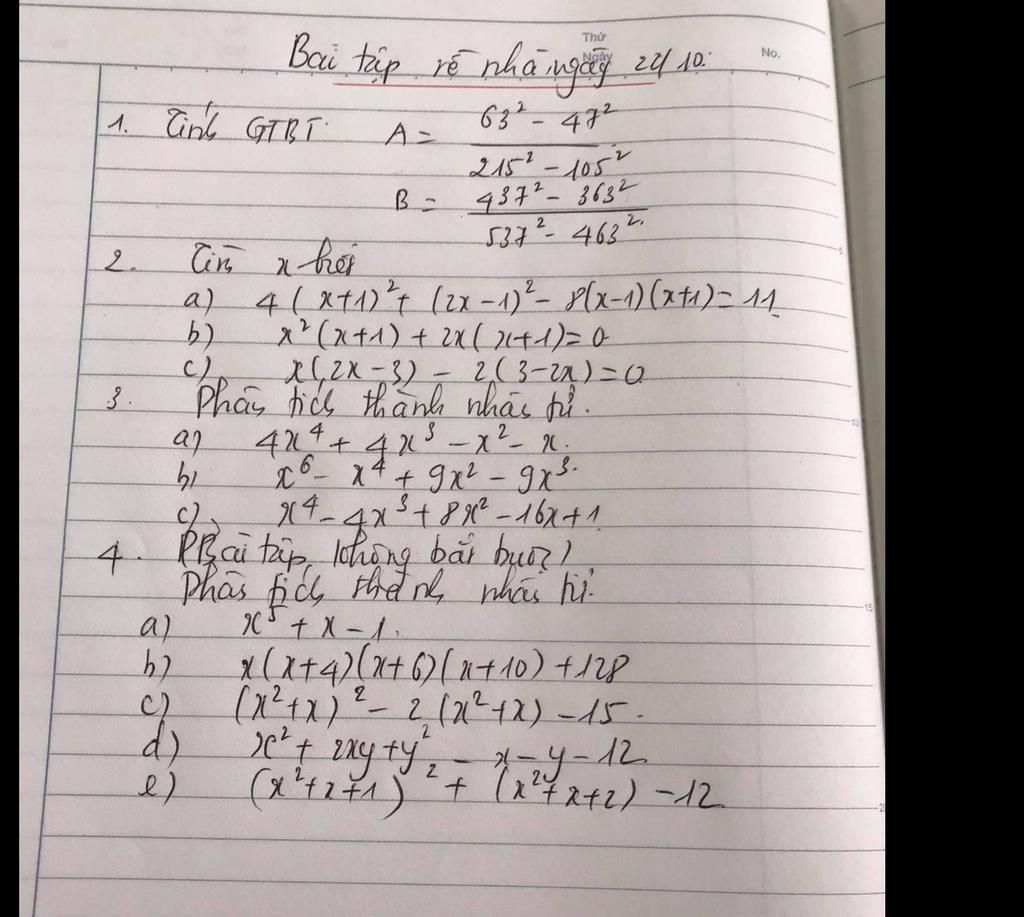 Thứ
Ngày
No.
Bài tập về nhà ngày 22/10:
1. Tính GTBT: A = (63² - 47²)/(215² - 105²)
B = (437² - 363²)/(537² - 463²).
2. Tìm x biết
a) 4(x+1)² + (2x-1)² - 8(x-1)(x+1) = 11
b) x²(x+1) + 2x(x+1) = 0
c) x(2x-3) - 2(3-2x) = 0
3. Phân tích thành nhân tử.
a) 4x⁴ + 4x³ - x² - x.
b) x⁶ - x⁴ + 9x² - 9x³.
c) x⁴ - 4x³ + 8x² - 16x + 1
4. Bài tập không bắt buộc)
Phân tích thành nhân tử.
a) x⁵ + x - 1.
b) x(x+4)(x+6)(x+10) + 128
c) (x²+x)² - 2(x²+x) - 15.
d) x² + 2xy + y² - x - y - 12
e) (x²+x+1)² + (x²+x+2) - 12
5
10
15